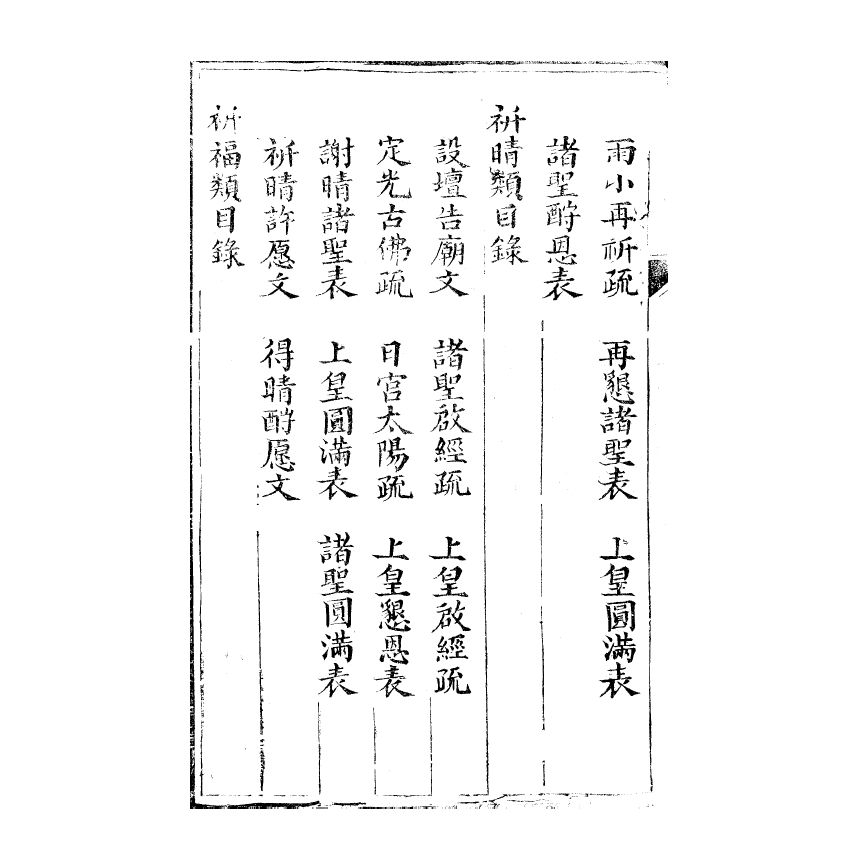 雨小再祈疏　再懇諸聖表　上皇圓滿表
諸聖酧恩表
祈晴類目錄
設壇告廟文　諸聖啟經疏　上皇啟經疏
定光古佛疏　日宮太陽疏　上皇懇恩表
謝晴諸聖表　上皇圓滿表　諸聖圓滿表
祈晴許愿文　得晴酧愿文
祈福類目錄